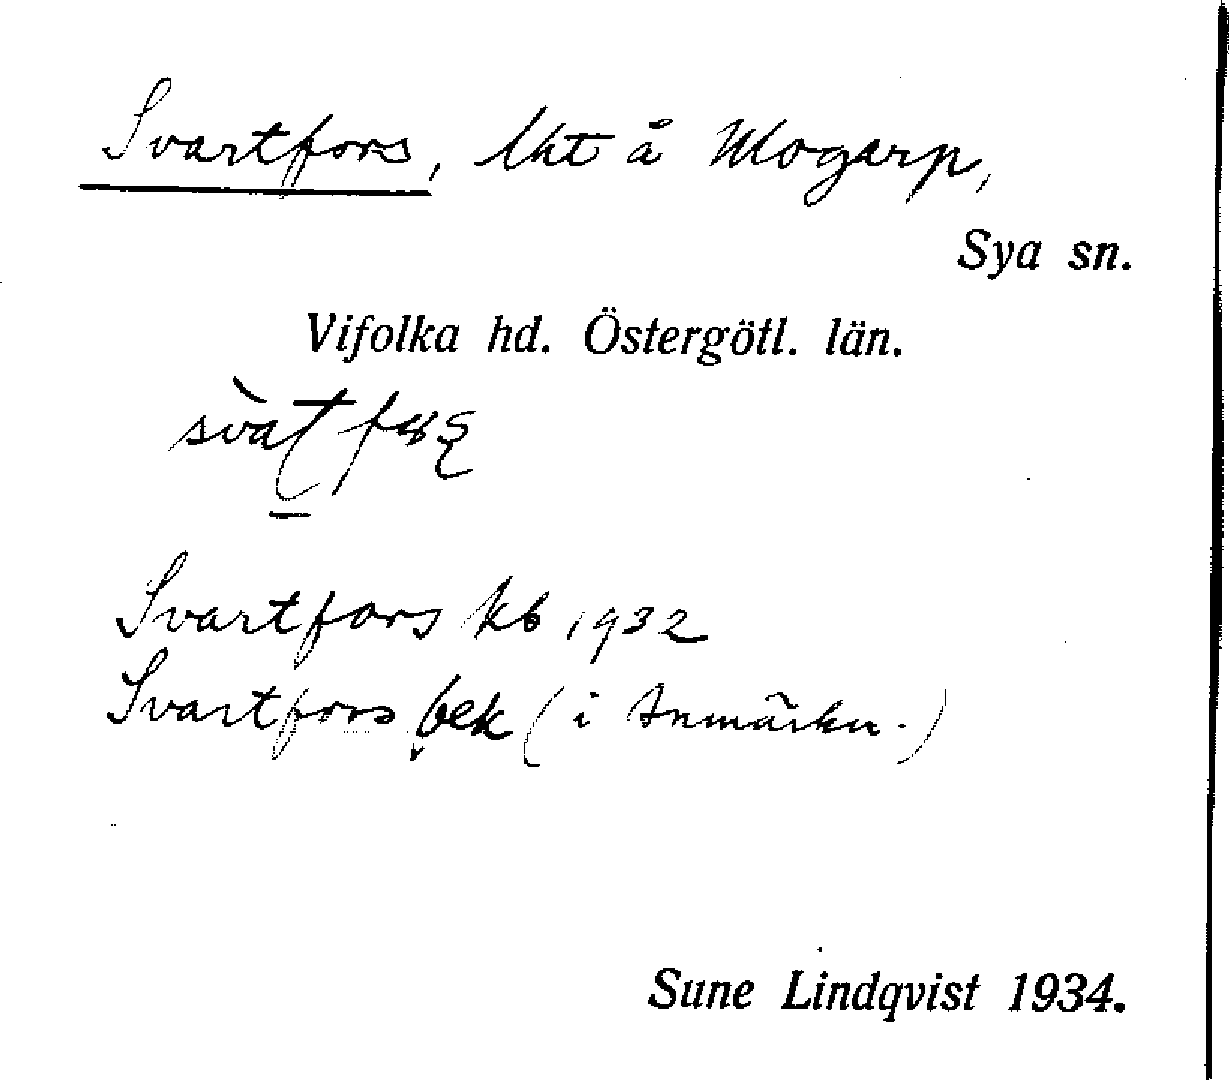 Svartfors, lht å Mogarp,
Sya sn.
Vifolka hd. Östergötl. län.
Svartfors kb 1932
Svartfors bek (i Anmärkn.)
Sune Lindqvist 1934.